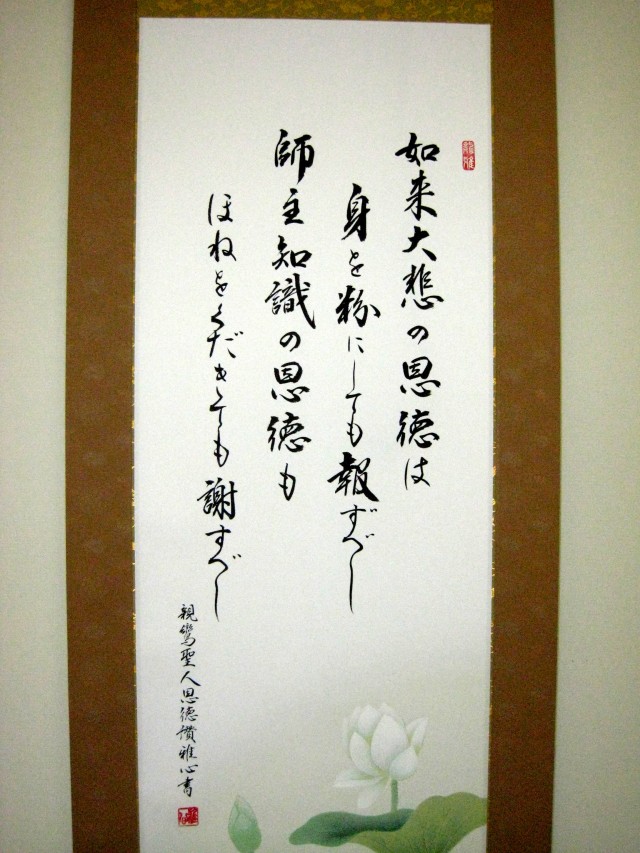 如来大悲の恩徳は
身を粉にしても報ずべし
師主知識の恩徳も
ほねをくだきても謝すべし
親鸞聖人恩徳讃雅心書